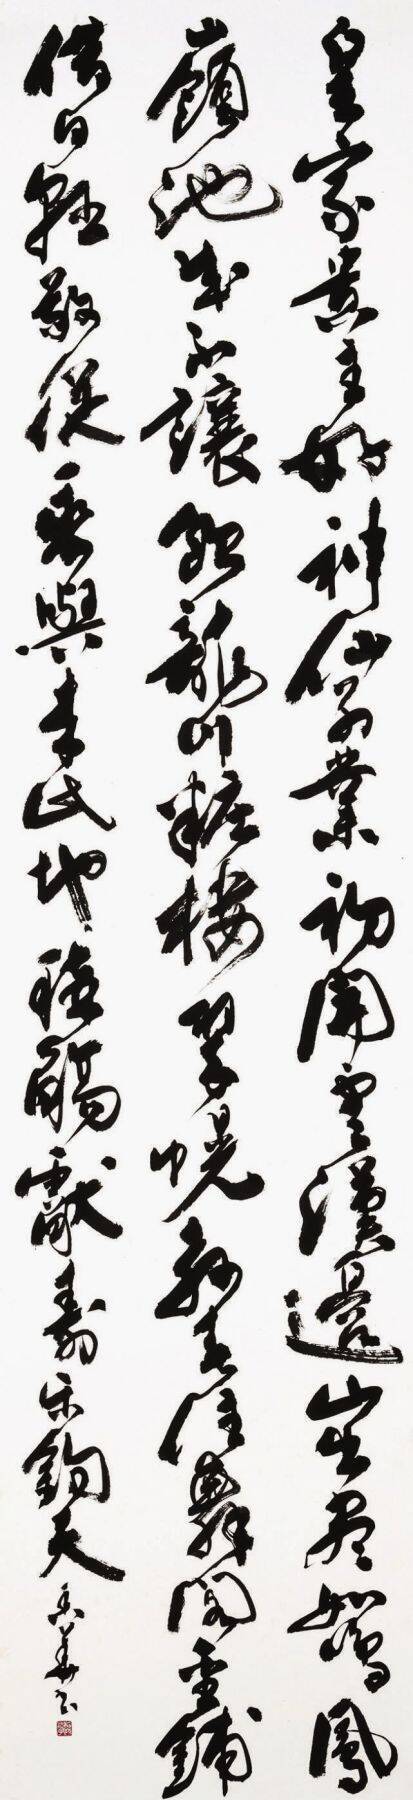 皇家貴主好神仙別業初開雲漢邊山出盡如鳴鳳
嶺池成不讓飲龍川粧樓翠幌教春住舞閣金鋪
借日懸敬從乘輿來此地稱觴獻壽樂鈞天